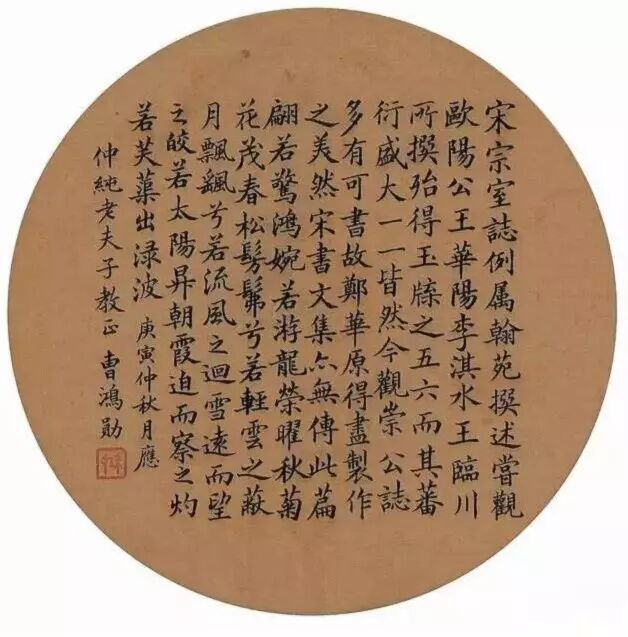 宋宗室誌例属翰苑撰述嘗觀
歐陽公王華陽李淇水王臨川
所撰殆得玉牒之五六而其蕃
衍盛大一一皆然今觀崇公誌
多有可書故鄭華原得盡製作
之美然宋書文集亦無傳此篇
翩若驚鴻婉若游龍榮曜秋菊
花茂春松髣髴兮若輕雲之蔽
月飄飖兮若流風之迴雪遠而望
之皎若太陽昇朝霞迫而察之灼
若芙蕖出渌波 庚寅仲秋月應
仲純老夫子教正 曹鴻勛